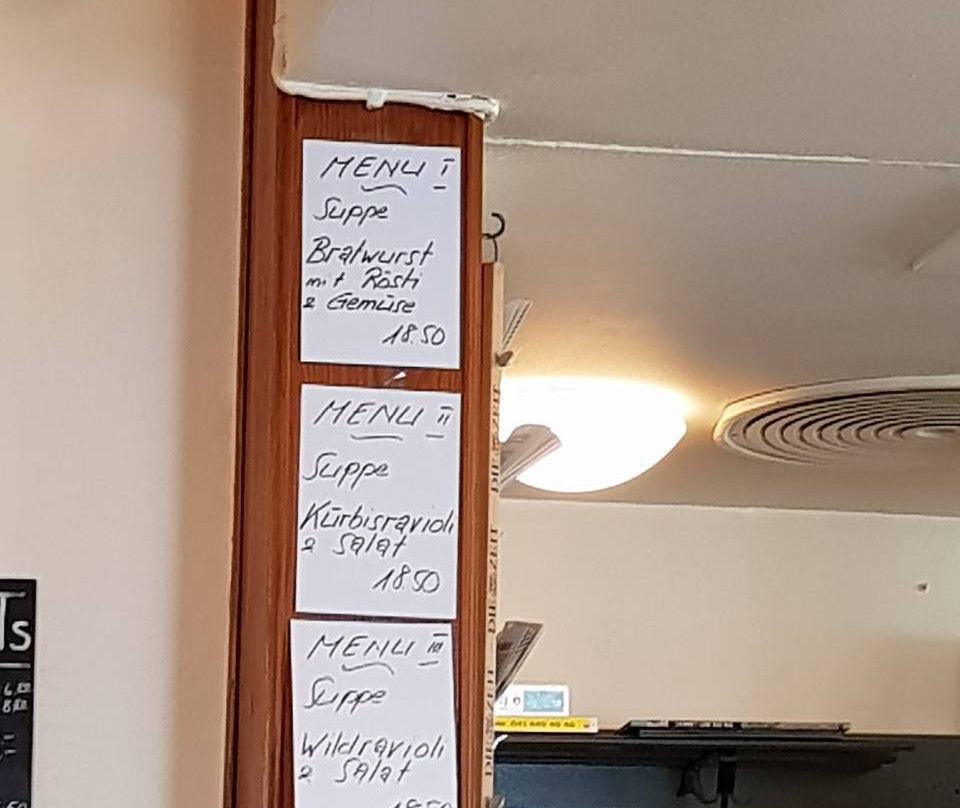 MENU I
Suppe
Bratwurst
mit Rösti
& Gemüse
18.50
MENU II
Suppe
Kürbisravioli
& Salat
18.50
MENU III
Suppe
Wildravioli
& Salat
18.50
DIE ZEIT
DIE ZEIT
DIE ZEIT